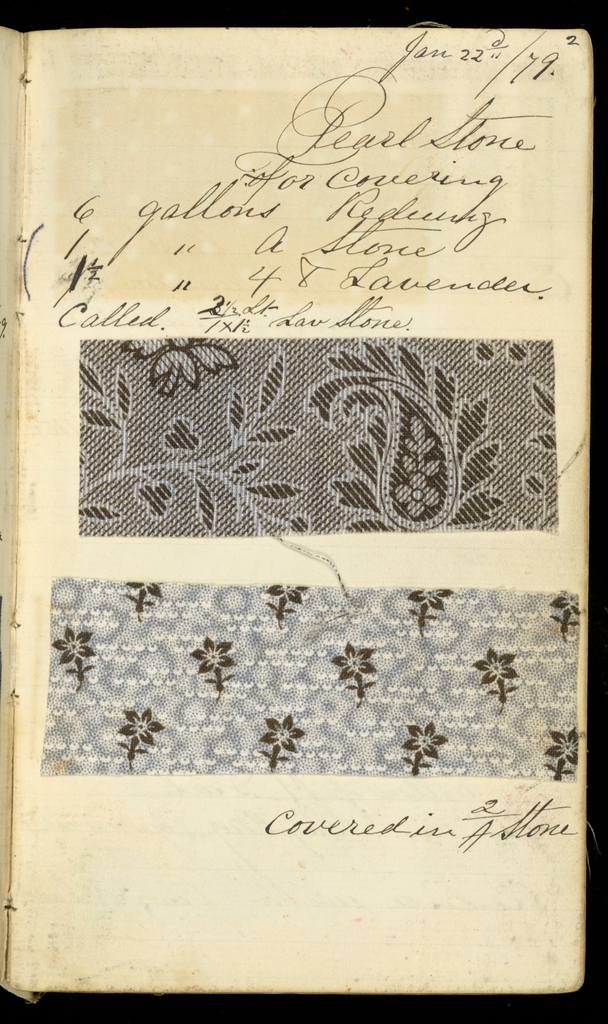 Jan 22d/79. 2
Pearl Stone
For Covering
6 gallons Reducing
1 " A Stone
1½ " 4 8 Lavender.
Called. Lt Lav Stone.
1x1½
Covered in 2/A Stone